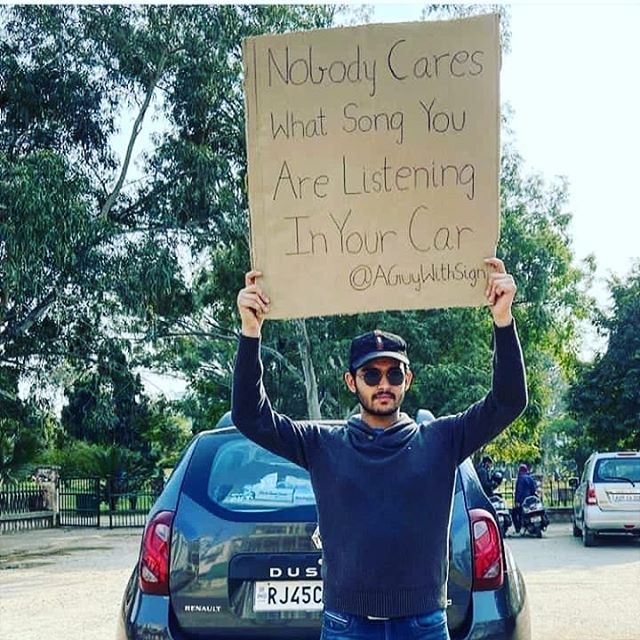 Nobody Cares
What Song You
Are Listening
In Your Car
@AGuyWithSign
DUS
RJ45C
RENAULT